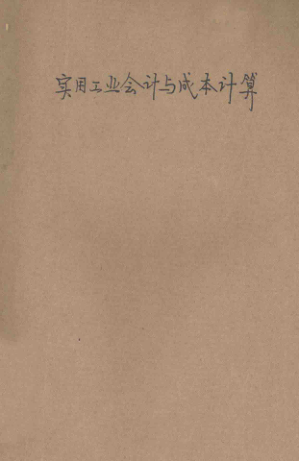 实用工业会计与成本计算